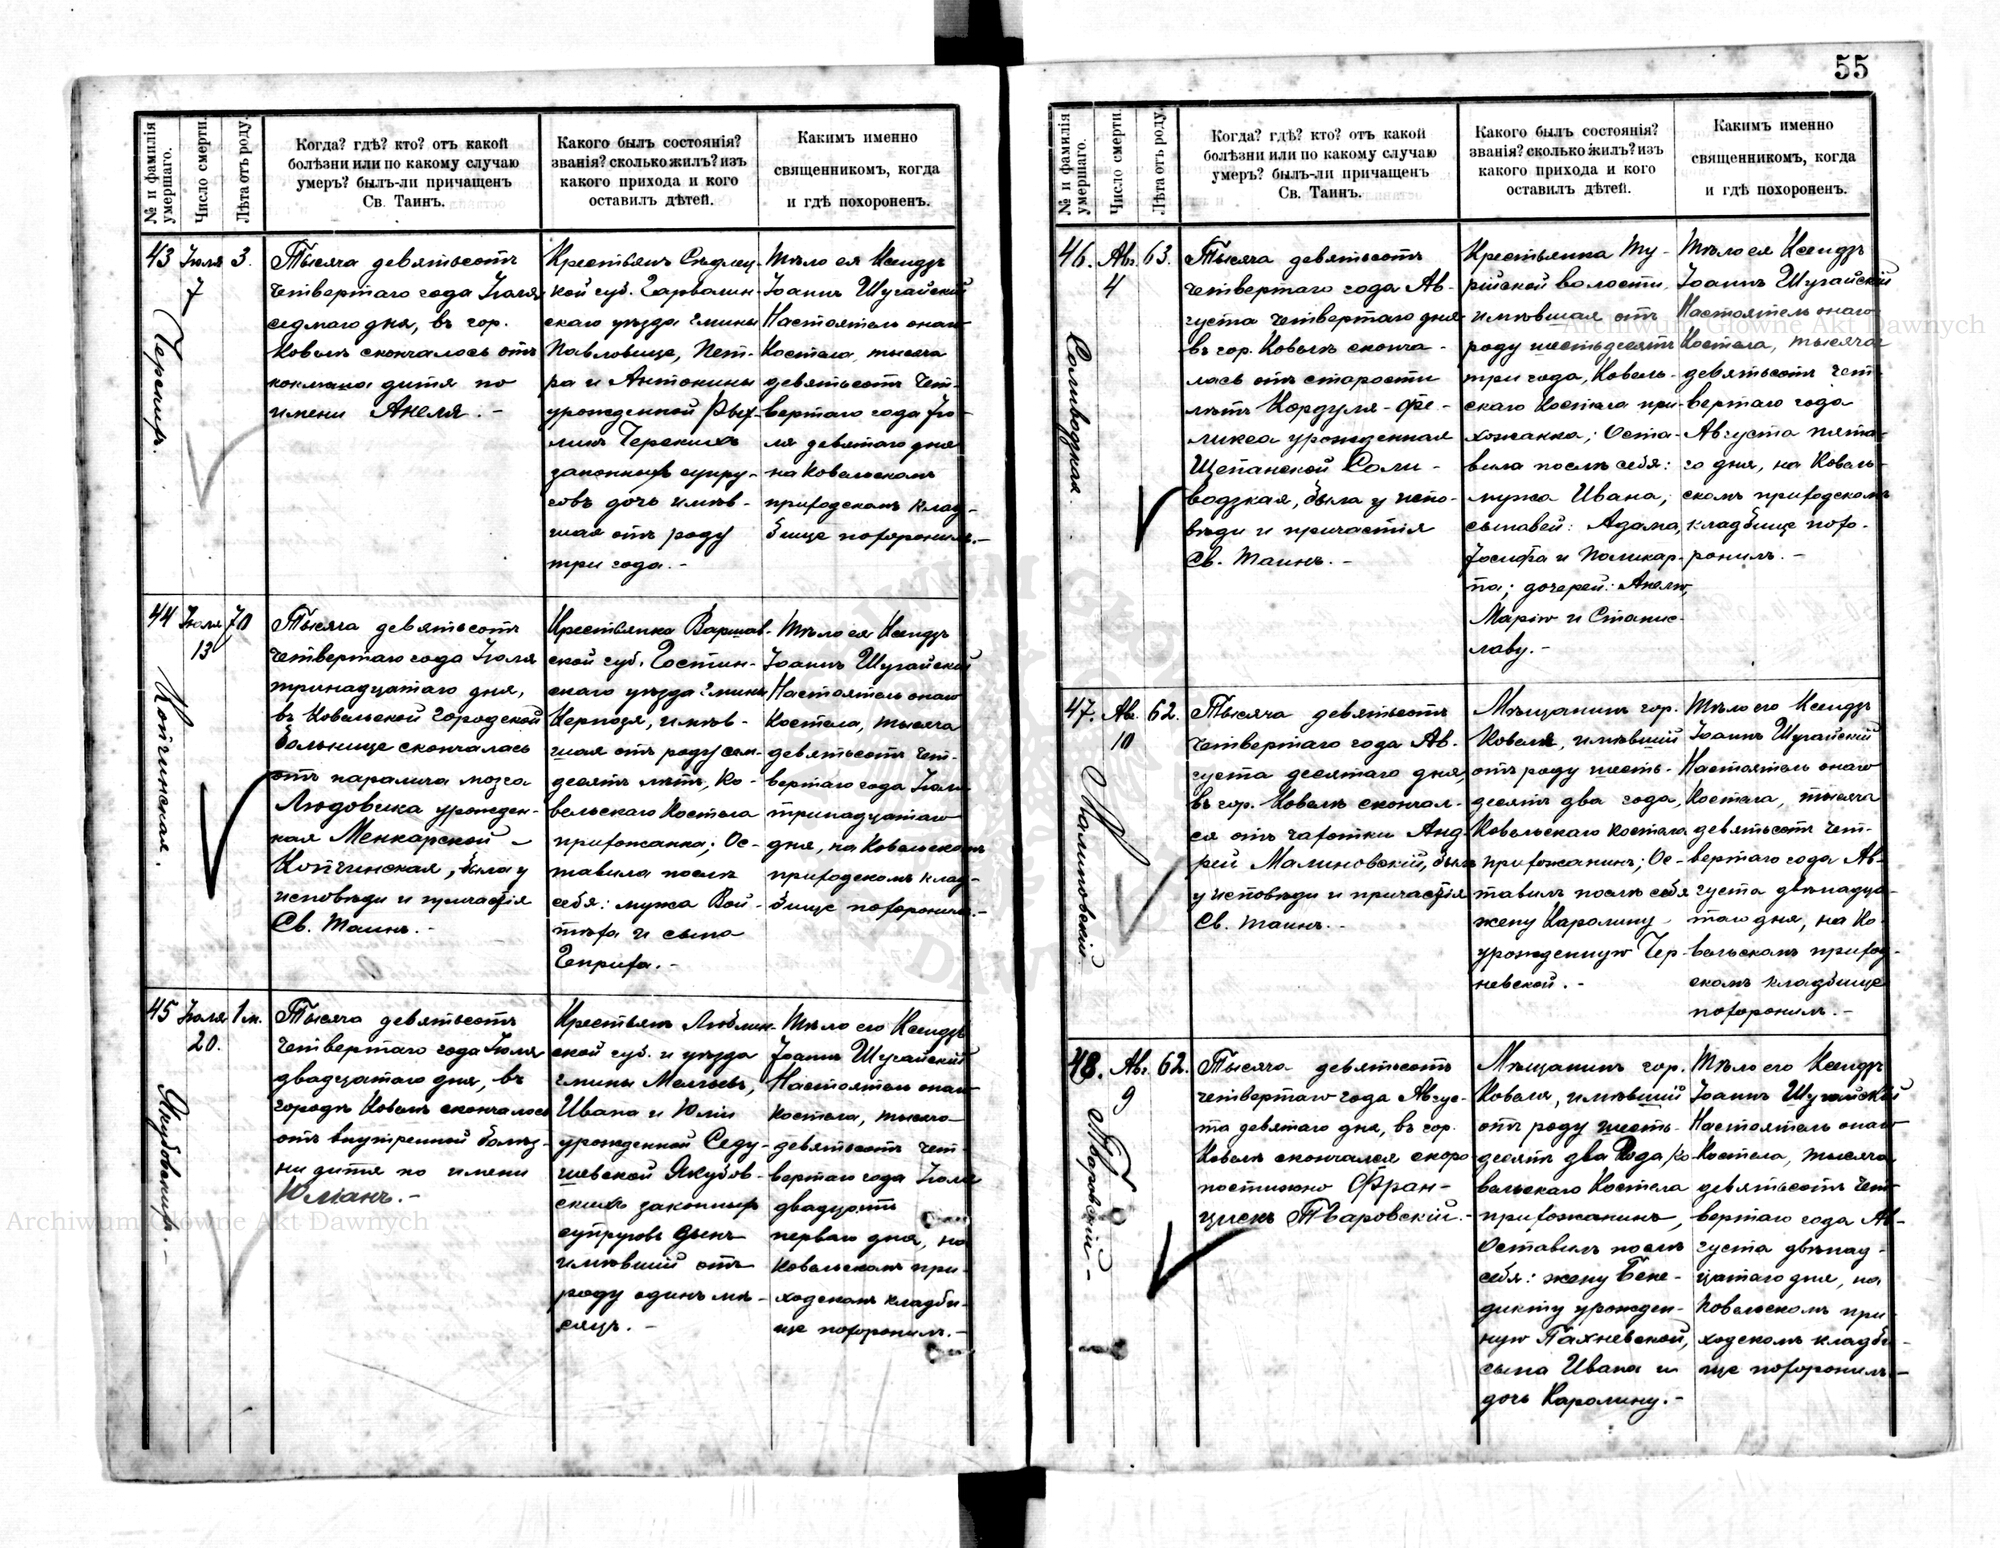 55
№ и фамилія умершаго.
Число смерти.
Лѣта отъ роду.
Когда? гдѣ? кто? отъ какой
болѣзни или по какому случаю
умеръ? былъ-ли причащенъ
Св. Таинъ.
Какого былъ состоянія?
званія? сколько жилъ? изъ
какого прихода и кого
оставилъ дѣтей.
Какимъ именно
священникомъ, когда
и гдѣ похороненъ.
43
Іюля
7
3.
Тысяча девятьсотъ
четвертаго года Іюля
седмаго дня, въ гор.
Ковелѣ скончалось отъ
коклюша дитя по
имени Анеля. –
Крестьянъ Сѣдлец-
кой губ. Гарволин-
скаго уѣзда гмины
Павловице, Пет-
ра и Антонины
урожденной
законныхъ супру-
говъ дочь имѣв-
шая отъ роду
три года. –
Тѣло ея Ксендзъ
Іоаннъ Шугайскій
Настоятель онаго
Костела, тысяча
девятьсотъ чет-
вертаго года Ію-
ля девятаго дня
на Ковельскомъ
приходскомъ клад-
бище похоронилъ. –
44
Іюля
13
70
Копчинская.
Тысяча девятьсотъ
четвертаго года Іюля
тринадцатаго дня,
въ Ковельской городской
больнице скончалась
отъ паралича мозга
Людовика урожден-
ная Менкарской –
Копчинская, была у
исповѣди и причастія
Св. Таинъ. –
Крестьянка Варшав-
ской губ. Гостин-
скаго уѣзда гмины
имѣв-
шая отъ роду сем-
десятъ лѣтъ, Ко-
вельскаго Костела
прихожанка; Ос-
тавила послѣ
себя: мужа Вой-
тѣха и сына
Генриха. –
Тѣло ея Ксендзъ
Іоаннъ Шугайскій
Настоятель онаго
Костела, тысяча
девятьсотъ чет-
вертаго года Іюля
тринадцатаго
дня, на Ковельскомъ
приходскомъ клад-
бище похоронилъ. –
45
Іюля
20.
1 м.
Якубовицъ. –
Тысяча девятьсотъ
четвертаго года Іюля
двадцатаго дня, въ
городѣ Ковелѣ скончалось
отъ внутренной болѣз-
ни дитя по имени
Юліанъ. –
Крестьянъ Люблин-
ской губ. и уѣзда
гмины Мелгьевъ,
Ивана и Юліи
урожденной Седу-
шевской Якубов-
скихъ законныхъ
супруговъ сынъ
имѣвшій отъ
роду одинъ мѣ-
сяцъ. –
Тѣло его Ксендзъ
Іоаннъ Шугайскій
Настоятель онаго
Костела, тысяча
девятьсотъ чет-
вертаго года Іюля
двадцать
перваго дня, на
Ковельскомъ при-
ходскомъ кладби-
ще похоронилъ. –
№ и фамилія умершаго.
Число смерти.
Лѣта отъ роду.
Когда? гдѣ? кто? отъ какой
болѣзни или по какому случаю
умеръ? былъ-ли причащенъ
Св. Таинъ.
Какого былъ состоянія?
званія? сколько жилъ? изъ
какого прихода и кого
оставилъ дѣтей.
Какимъ именно
священникомъ, когда
и гдѣ похороненъ.
46.
Ав.
4
63.
Соливодзкая.
Тысяча девятьсотъ
четвертаго года Ав-
густа четвертаго дня
въ гор. Ковелѣ сконча-
лась отъ старости
лѣтъ Кордуля-Фе-
ликса урожденная
Щепанской Соли-
водзкая, была у испо-
вѣди и причастія
Св. Таинъ. –
Крестьянка Ту-
рійской волости,
имѣвшая отъ
роду шестьдесятъ
три года, Ковель-
скаго Костела при-
хожанка; Оста-
вила послѣ себя:
мужа Ивана,
сыновей: Адама,
Іосифа и Поликар-
па; дочерей: Анелю,
Марію и Станис-
лаву. –
Тѣло ея Ксендзъ
Іоаннъ Шугайскій
Настоятель онаго
Костела, тысяча
девятьсотъ чет-
вертаго года
Августа пята-
го дня, на Ковель-
скомъ приходскомъ
кладбище похо-
ронилъ. –
47.
Ав.
10
62.
Малиновскій
Тысяча девятьсотъ
четвертаго года Ав-
густа десятаго дня,
въ гор. Ковелѣ скончал-
ся отъ чахотки Анд-
рей Малиновскій, былъ
у исповѣди и причастія
Св. Таинъ. –
Мѣщанинъ гор.
Ковеля, имѣвшій
отъ роду шесть-
десятъ два года,
Ковельскаго Костела
прихожанинъ; Ос-
тавилъ послѣ себя
жену Каролину
урожденную Чер-
невской. –
Тѣло его Ксендзъ
Іоаннъ Шугайскій
Настоятель онаго
Костела, тысяча
девятьсотъ чет-
вертаго года Ав-
густа двѣнадца-
таго дня, на Ко-
вельскомъ приход-
скомъ кладбище
похоронилъ. –
48.
Ав.
9
62.
Тваровскій –
Тысяча девятьсотъ
четвертаго года Авгус-
та девятаго дня, въ гор.
Ковелѣ скончался скоро-
постижно Фран-
цискъ Тваровскій. –
Мѣщанинъ гор.
Ковеля, имѣвшій
отъ роду шесть-
десятъ два года, Ко-
вельскаго Костела
прихожанинъ,
Оставилъ послѣ
себя: жену Бене-
дикту урожден-
ную Пахневской,
сына Ивана и
дочь Каролину. –
Тѣло его Ксендзъ
Іоаннъ Шугайскій
Настоятель онаго
Костела, тысяча
девятьсотъ чет-
вертаго года Ав-
густа двѣнад-
цатаго дня, на
Ковельскомъ при-
ходскомъ кладби-
ще похоронилъ. –
Archiwum Główne Akt Dawnych
Archiwum Główne Akt Dawnych